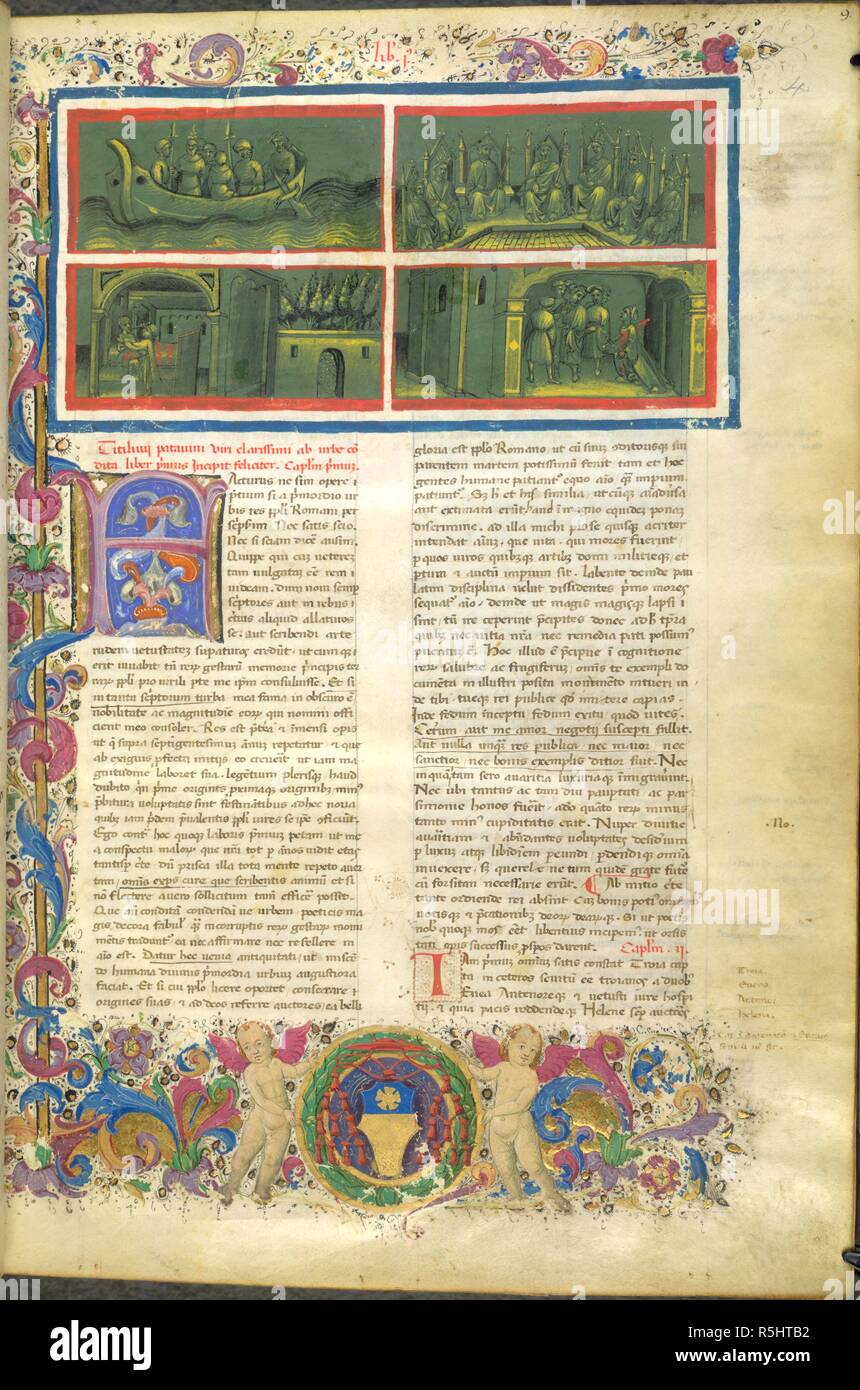 9
lib. i
4
Titilivij patavini viri clarissimi ab urbe co
dita liber primus Incipit feliciter. Caplm primuz.
Acturus ne sim opere
ptium si a pmordio ur
bis res ppli Romani per
sepsim Nec satis scio.
Nec si sciam dice ausim.
Quippe qui cuz veterez
tam vulgataz ee rem
uideam. dum noui semp
septores aut in rebus
ctius aliquid allaturos
se. aut scribendi arte
rudem uetustatez supaturos credunt. ut cum qz
erit iuuabit tn rerum gestarum memorie pncipis ter
rarum ppli pro uirili pte me ipm consuluisse. Et si
in tanta septorum turba mea fama in obscuro e
nobilitate ac magnitudie eorum qui nomini offi
cient meo consoler. Res est pterea & imensi opis
ut q supra septigentesimuz annuz repetatur & que
ab exiguis pfecta initijs eo creuerit ut iam ma
gnitudine laboret sua. legentium plerisque haud
dubito qn prime origines primaque originibus
pbitura uoluptatis sint festinatibus ad hec noua
quibus iam pdem pualentis ppli uires se ipe oficiunt.
Ego contra hoc quoque laboris pmiuz petam ut me
a conspectu malorum que nra tot p annos uidit etas
tantisper certe dum prisca illa tota mente repeto auer
tam omnis exps cure que scribentis animu et si
no flectere a uero sollicitum tam efficere possit.
Que an condita condenda ue urbem poeticis ma
gis decora fabulis q incorruptis rerum gestarum monu
mentis traduntur ea nec affirmare nec refellere in
aio est. Datur hec uenia antiquitati ut miscen
do humana diuinis pmordia urbium augustiora
faciat. Et si cui pplo licere oportet consecrare
origines suas & ad deos referre auctores ea belli
gloria est pplo Romano ut cu suuz conditorisque sui
parentem martem potissimu ferat tam et hoc
gentes humane patiantur equo aio q impium
patiuntur. Sz hec et his similia utcunque aiaduersa
aut extimata erunt haud in magno equidez ponaz
discrimine. ad illa michi pro se quisque acriter
intendat aiuz. que uita. qui mores fuerint
p quos uiros quibusque artibus domi militieque et
ptum & auctu impium sit. Labente deinde pau
latim disciplina uelut dissidentes pmo mores
sequatur aio. deinde ut magis magisque lapsi
sint. tu ire ceperint pcipites donec ad hec tpra
quibus nec uitia nra nec remedia pati possumus
puentuz e. Hoc illud e pcipue i cognitione
rerum salubre ac frugiferu, omis te exempli do
cumenta in illustri posita monimeto intueri in
de tibi tueque rei publice qd imitere capias.
Inde fedum inceptu fedum exitu quod uites.
Ceterum aut me amor negotij suscepti fallit.
Aut nulla unquam res publica nec maior nec
sanctior nec bonis exemplis ditior fuit. Nec
in quam tam sero auaritia luxuriaque imigrauerint.
Nec ubi tantus ac tam diu paupertati ac par
simonie honos fuerit. adeo quanto rerum minus
tanto minus cupiditatis erat. Nuper diuitie
auaritiam & abundantes uoluptates desiderium
p luxum atque libidinem peundi pdendique omnia
inuexere. Sz querele ne tum quide grate future
cu forsitan necessarie erunt. Ab initio certe
tante ordiende rei absint. Cuz bonis potius ominibus
uotisque & pcationibus deorum dearumque. Si ut poetis
nob quoque mos eet libentius inciperemus. ut orsis
tati opis successus psperos darent. Caplm. ii.
Iam pmum omniuz satis constat Troia cap
ta in ceteros seuitu ee troianos. a duobus
Enea Antenoreque & uetusti iure hospi
tij & quia pacis reddendeque Helene semp auctores
.No.
Troia.
Eneas
Antenor
Helena.
alamy
Image ID: R5HTB2
www.alamy.com